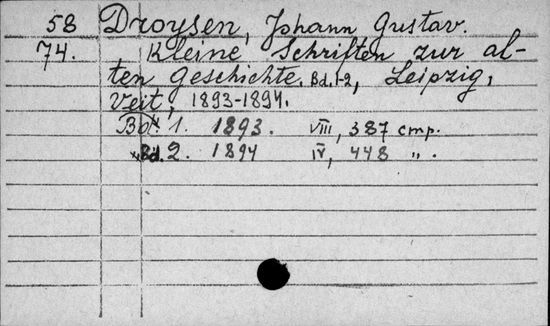 58 Droysen, Johann Gustav.
74. Kleine Schriften zur al-
ten Geschichte. Bd. 1-2, Leipzig,
Veit, 1893-1894.
Bd. 1. 1893. VIII, 387 стр.
Bd. 2. 1894 IV, 448 ".